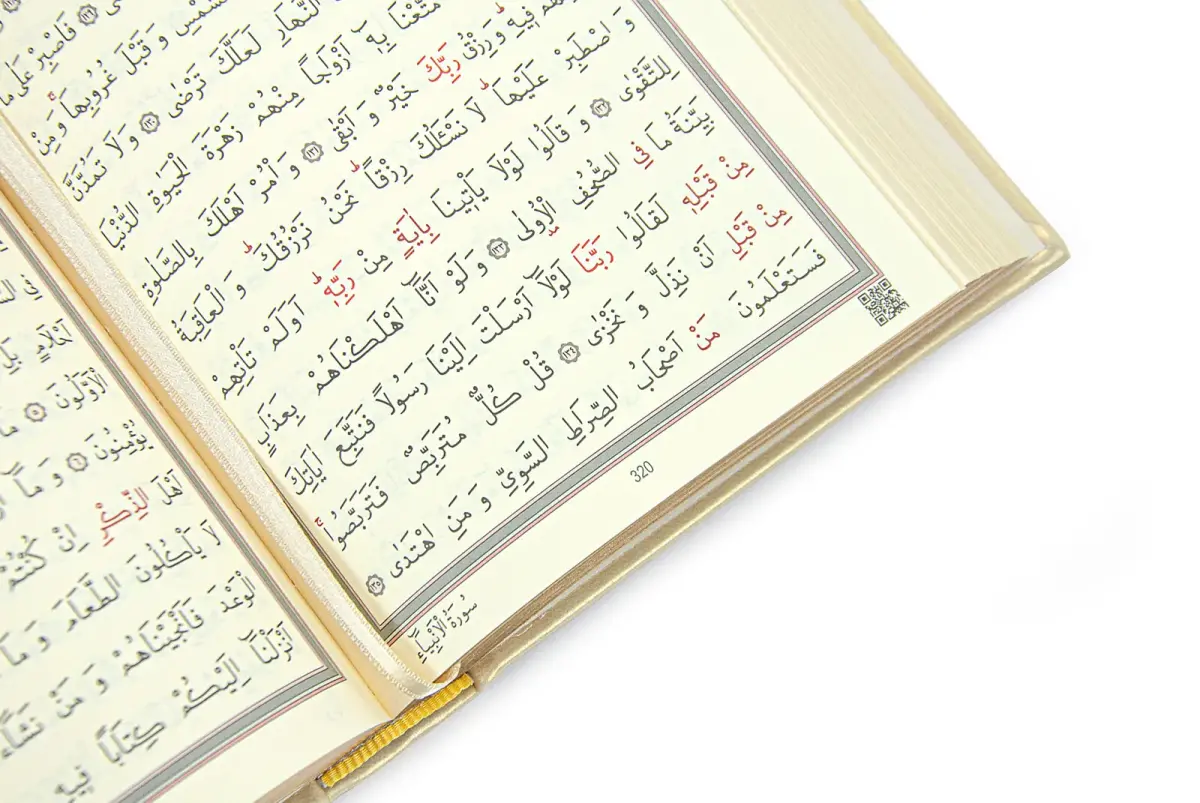 فَاصْبِرْ عَلٰى مَا
وَ قَبْلَ غُرُوبِهَاۚ وَ مِنْ
النَّهَارِ لَعَلَّكَ تَرْضٰى ﴿١٣٠﴾ وَلَا تَمُدَّنَّ
مَتَّعْنَا بِه۪ٓ اَزْوَاجًا مِنْهُمْ زَهْرَةَ الْحَيٰوةِ الدُّنْيَا
ف۪يهِۜ وَ رِزْقُ رَبِّكَ خَيْرٌ وَ اَبْقٰى ﴿١٣١﴾ وَ أْمُرْ اَهْلَكَ بِالصَّلٰوةِ
وَ اصْطَبِرْ عَلَيْهَاۜ لَا نَسْـَٔلُكَ رِزْقًاۜ نَحْنُ نَرْزُقُكَۜ وَ الْعَاقِبَةُ
لِلتَّقْوٰى ﴿١٣٢﴾ وَ قَالُوا لَوْلَا يَأْت۪ينَا بِاٰيَةٍ مِنْ رَبِّه۪ۜ اَوَلَمْ تَأْتِهِمْ
بَيِّنَةُ مَا فِي الصُّحُفِ الْاُو۫لٰى ﴿١٣٣﴾ وَ لَوْ اَنَّٓا اَهْلَكْنَاهُمْ بِعَذَابٍ
مِنْ قَبْلِه۪ لَقَالُوا رَبَّنَا لَوْلَٓا اَرْسَلْتَ اِلَيْنَا رَسُولًا فَنَتَّبِعَ اٰيَاتِكَ
مِنْ قَبْلِ اَنْ نَذِلَّ وَ نَخْزٰى ﴿١٣٤﴾ قُلْ كُلٌّ مُتَرَبِّصٌ فَتَرَبَّصُواۚ
فَسَتَعْلَمُونَ مَنْ اَصْحَابُ الصِّرَاطِ السَّوِيِّ وَ مَنِ اهْتَدٰى ﴿١٣٥﴾
320
سُورَةُ الْاَنْبِيَٓاءِ
الْاَوَّلُونَ ﴿٥﴾ مَٓا
يُؤْمِنُونَ ﴿٦﴾ وَ مَٓا
اَهْلَ الذِّكْرِ اِنْ كُنْتُمْ
لَا يَأْكُلُونَ الطَّعَامَ وَ مَا
الْوَعْدَ فَاَنْجَيْنَاهُمْ وَ مَنْ نَشَٓاءُ
اَنْزَلْنَٓا اِلَيْكُمْ كِتَابًا ف۪يهِ